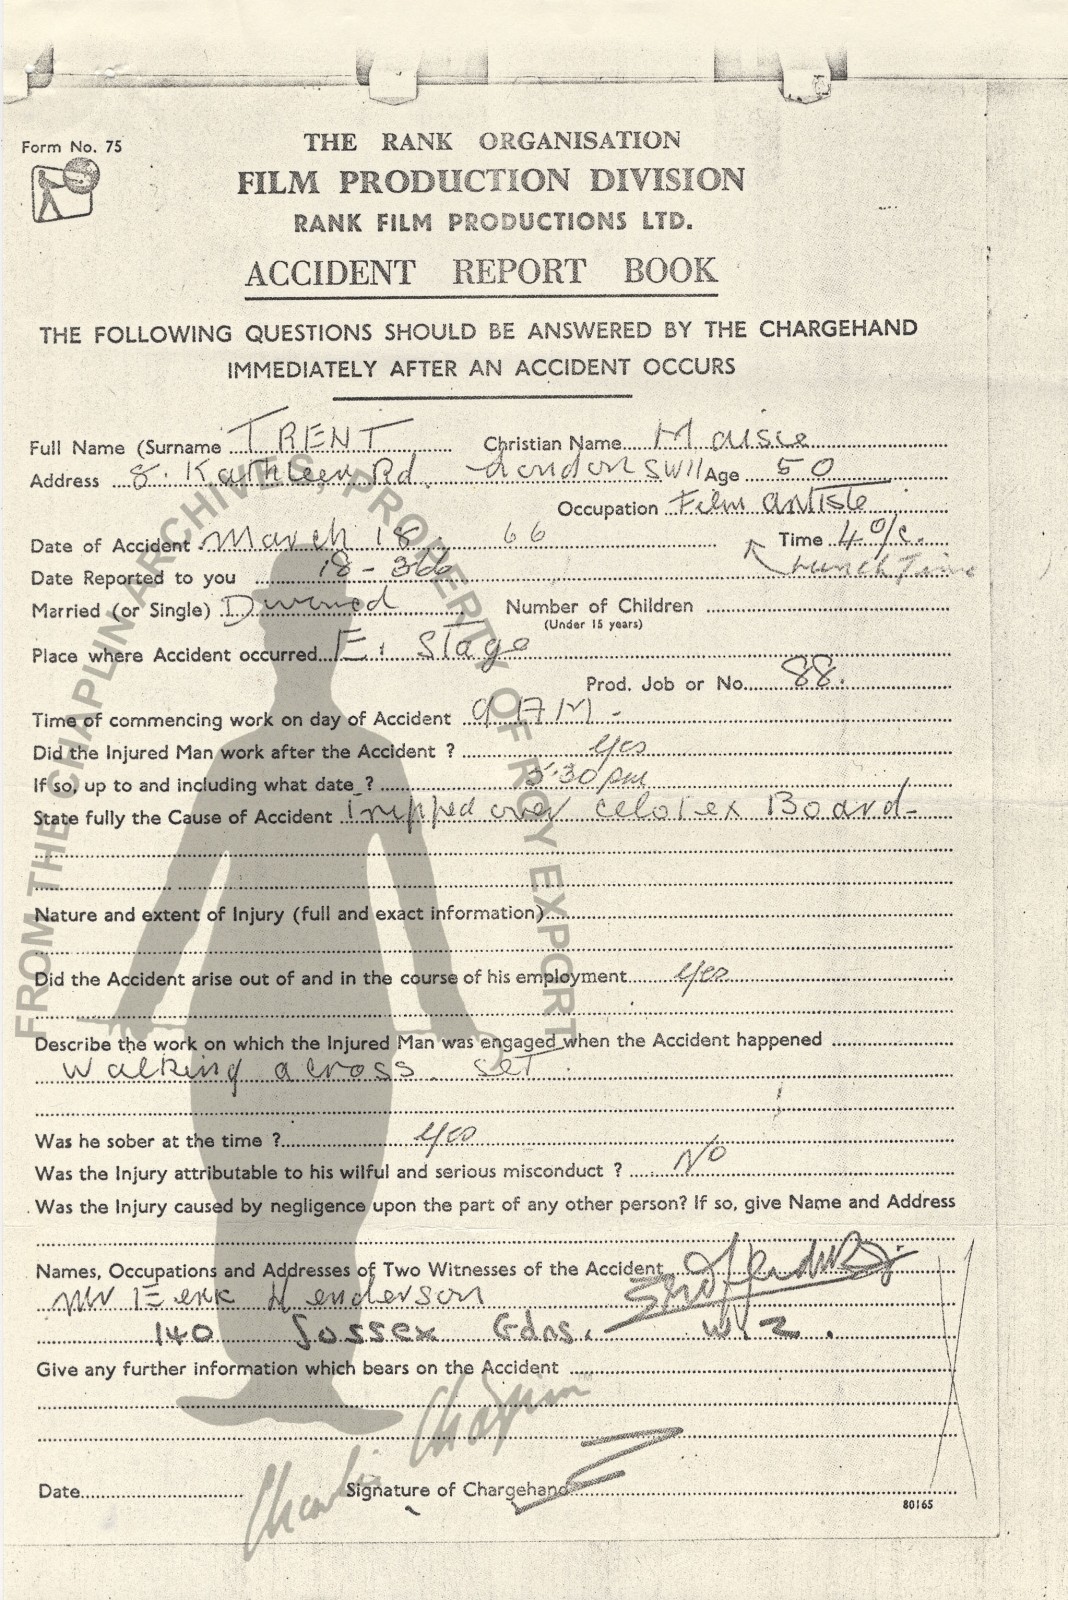 Form No. 75
THE RANK ORGANISATION
FILM PRODUCTION DIVISION
RANK FILM PRODUCTIONS LTD.
ACCIDENT REPORT BOOK
THE FOLLOWING QUESTIONS SHOULD BE ANSWERED BY THE CHARGEHAND
IMMEDIATELY AFTER AN ACCIDENT OCCURS
Full Name (Surname TRENT Christian Name Maisie
Address 8. Kathleen Rd. London SW11 Age 50
Occupation Film artiste
Date of Accident March 18 66 Time 4 o/c.
Lunch Time
Date Reported to you 18-366
Married (or Single) Divorced Number of Children
(Under 15 years)
Place where Accident occurred E. Stage
Prod. Job or No. 88.
Time of commencing work on day of Accident
Did the Injured Man work after the Accident ? yes
If so, up to and including what date ? 5.30 pm
State fully the Cause of Accident Tripped over celotex Board-
Nature and extent of Injury (full and exact information)
Did the Accident arise out of and in the course of his employment yes
Describe the work on which the Injured Man was engaged when the Accident happened
walking across set.
Was he sober at the time ? yes
Was the Injury attributable to his wilful and serious misconduct ? No
Was the Injury caused by negligence upon the part of any other person? If so, give Name and Address
Names, Occupations and Addresses of Two Witnesses of the Accident
Mr Henderson
140 Sossex Gdns. W.2.
Give any further information which bears on the Accident
Date Signature of Chargehand
80165
FROM THE CHAPLIN ARCHIVES, PROPERTY OF ROY EXPORT
Charlie Chaplin™